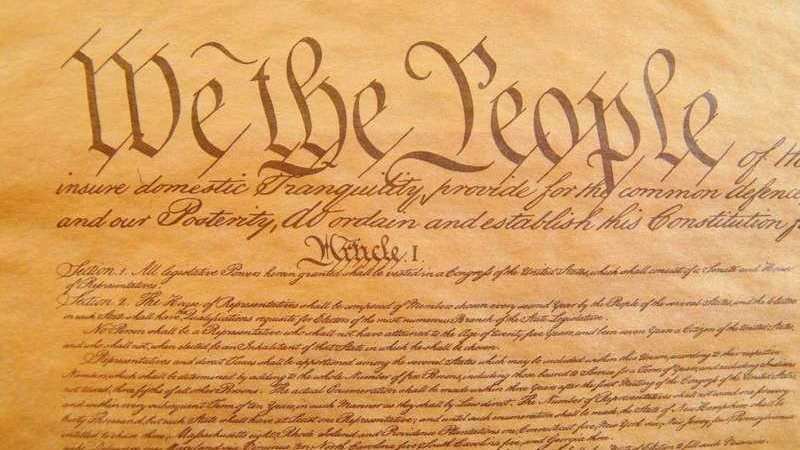 We the People of th
insure domestic Tranquility, provide for the common defence
and our Posterity, do ordain and establish this Constitution f
Article. I.
Section. 1. All legislative Powers herein granted shall be vested in a Congress of the United States, which shall consist of a Senate and House
of Representatives.
Section. 2. The House of Representatives shall be composed of Members chosen every second Year by the People of the several States, and the Electors
in each State shall have Qualifications requisite for Electors of the most numerous Branch of the State Legislature.
No Person shall be a Representative who shall not have attained to the Age of twenty five Years, and been seven Years a Citizen of the United States,
and who shall not, when elected, be an Inhabitant of that State in which he shall be chosen.
Representatives and direct Taxes shall be apportioned among the several States which may be included within this Union, according to their respective
Numbers, which shall be determined by adding to the whole Number of free Persons, including those bound to Service for a Term of Years, and excluding Indians
not taxed, three fifths of all other Persons. The actual Enumeration shall be made within three Years after the first Meeting of the Congress of the United States,
and within every subsequent Term of ten Years, in such Manner as they shall by Law direct. The Number of Representatives shall not exceed one for every
thirty Thousand, but each State shall have at Least one Representative; and until such enumeration shall be made, the State of New Hampshire shall be
entitled to chuse three, Massachusetts eight, Rhode Island and Providence Plantations one, Connecticut five, New York six, New Jersey four, Pennsylvania
eight, Delaware one, Maryland six, Virginia ten, North Carolina five, South Carolina five, and Georgia three.